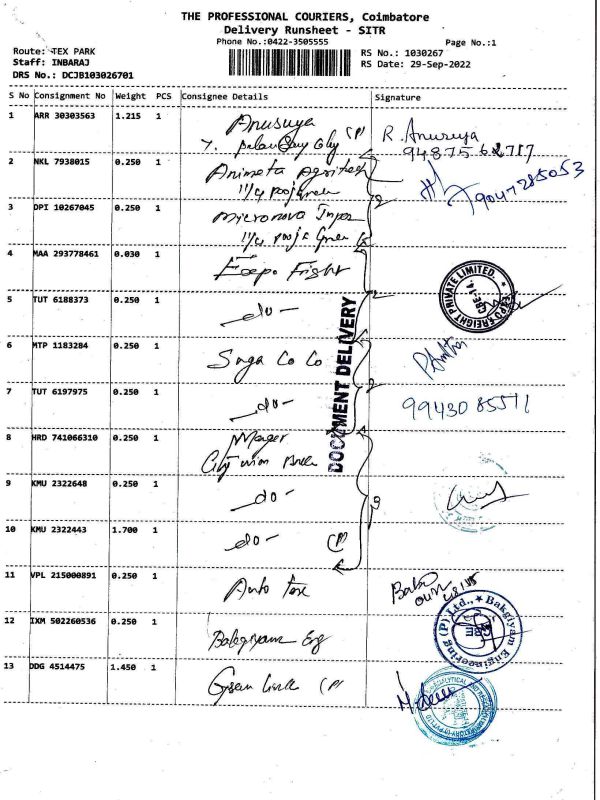 THE PROFESSIONAL COURIERS, Coimbatore
Delivery Runsheet - SITR
Phone No.:0422-3505555
Page No.:1
Route: TEX PARK
Staff: INBARAJ
DRS No.: DCJB103026701
RS No.: 1030267
RS Date: 29-Sep-2022
S No Consignment No Weight PCS Consignee Details Signature
1 ARR 30303563 1.215 1 Anusuya R. Anusuya
94875 62717
2 NKL 7938015 0.250 1 Animeta Agritech 9047285053
3 DPI 10267045 0.250 1 Micronova Impex
11/4 Pooja
4 MAA 293778461 0.030 1 Expo Fright
EXPO FREIGHT PRIVATE LIMITED. CBE-14.
5 TUT 6188373 0.250 1 -do-
DOCUMENT DELIVERY
6 MTP 1183284 0.250 1 Saga Co Co
7 TUT 6197975 0.250 1 -do- 99430 85511
8 HRD 741066310 0.250 1
City
9 KMU 2322648 0.250 1 -do-
10 KMU 2322443 1.700 1 -do-
11 VPL 215000891 0.250 1 Auto Tex
12 IXM 502260536 0.250 1 Bakgiyam Eng
Bakgiyam Engineering (P) Ltd., CBE
13 DDG 4514475 1.450 1 Green Link